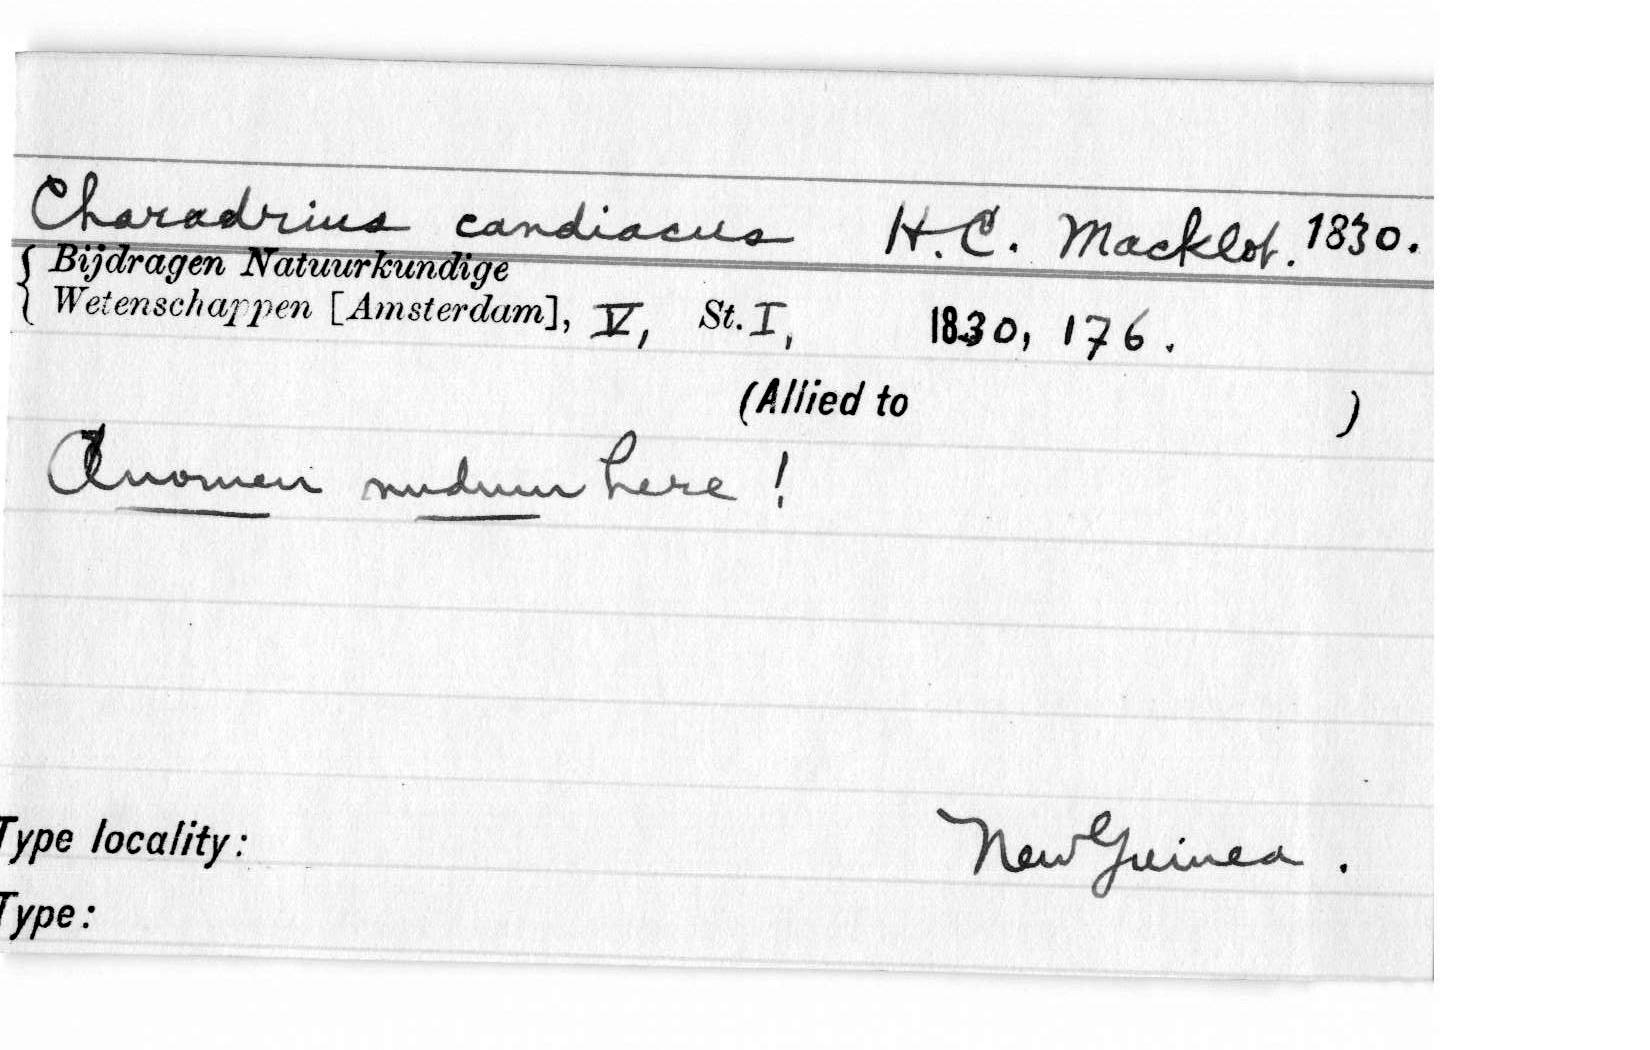 Charadrius candiacus H.C. Macklot. 1830.
Bijdragen Natuurkundige
Wetenschappen [Amsterdam], V, St. I, 1830, 176.
(Allied to )
A nomen nudum here!
Type locality: New Guinea.
Type: